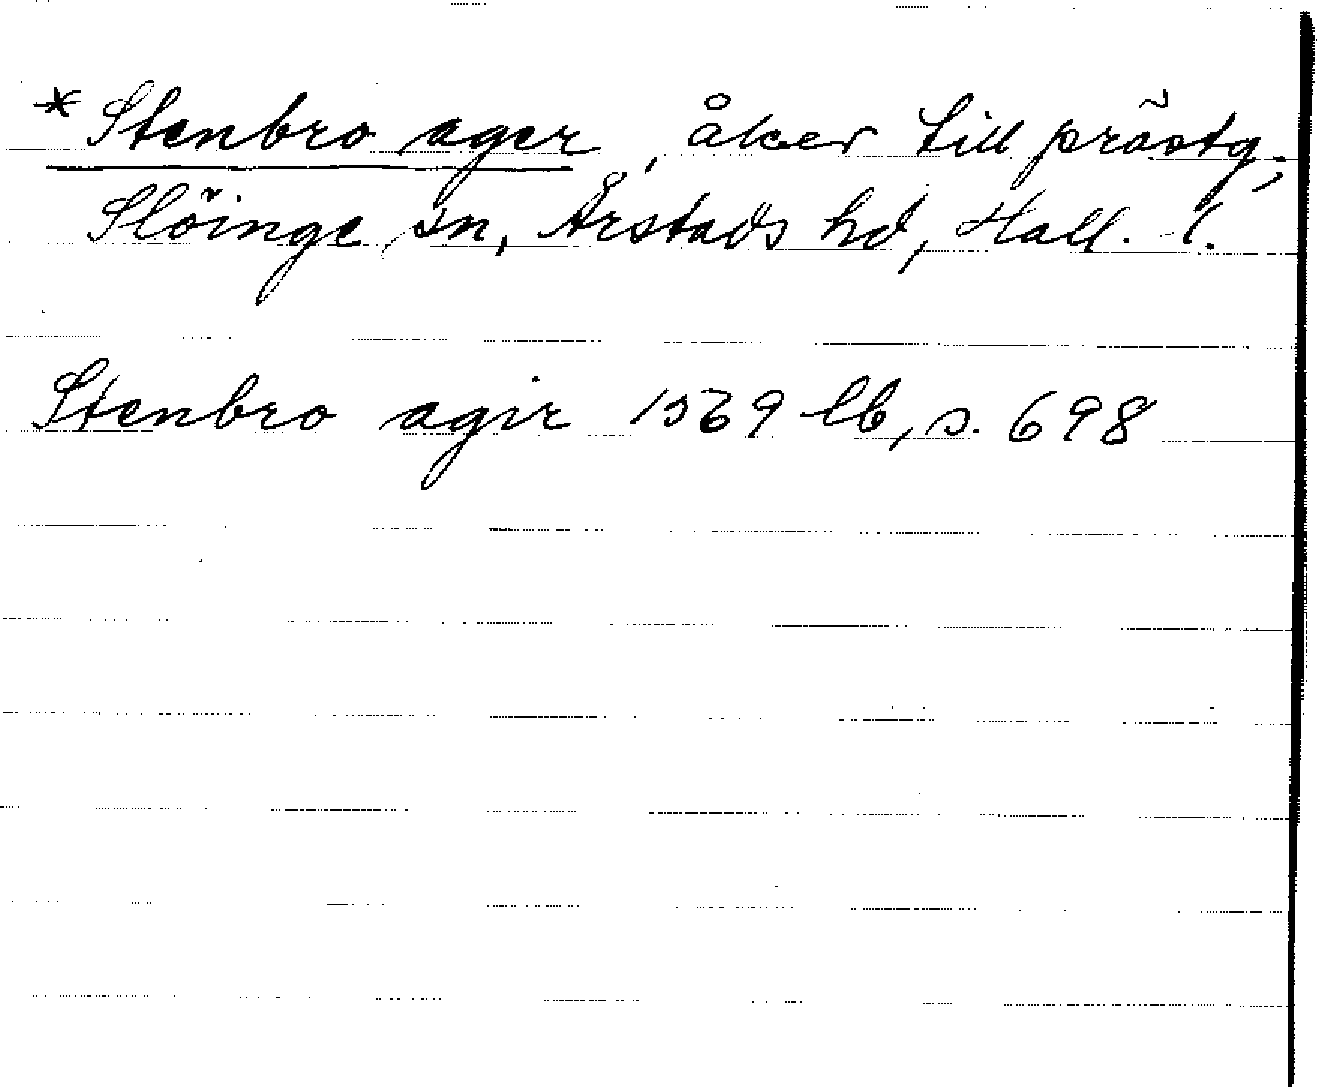 * Stenbro ager, åker till prästg.,
Slöinge sn, Årstads hd, Hall. l.
Stenbro agir 1569 lb, s. 698